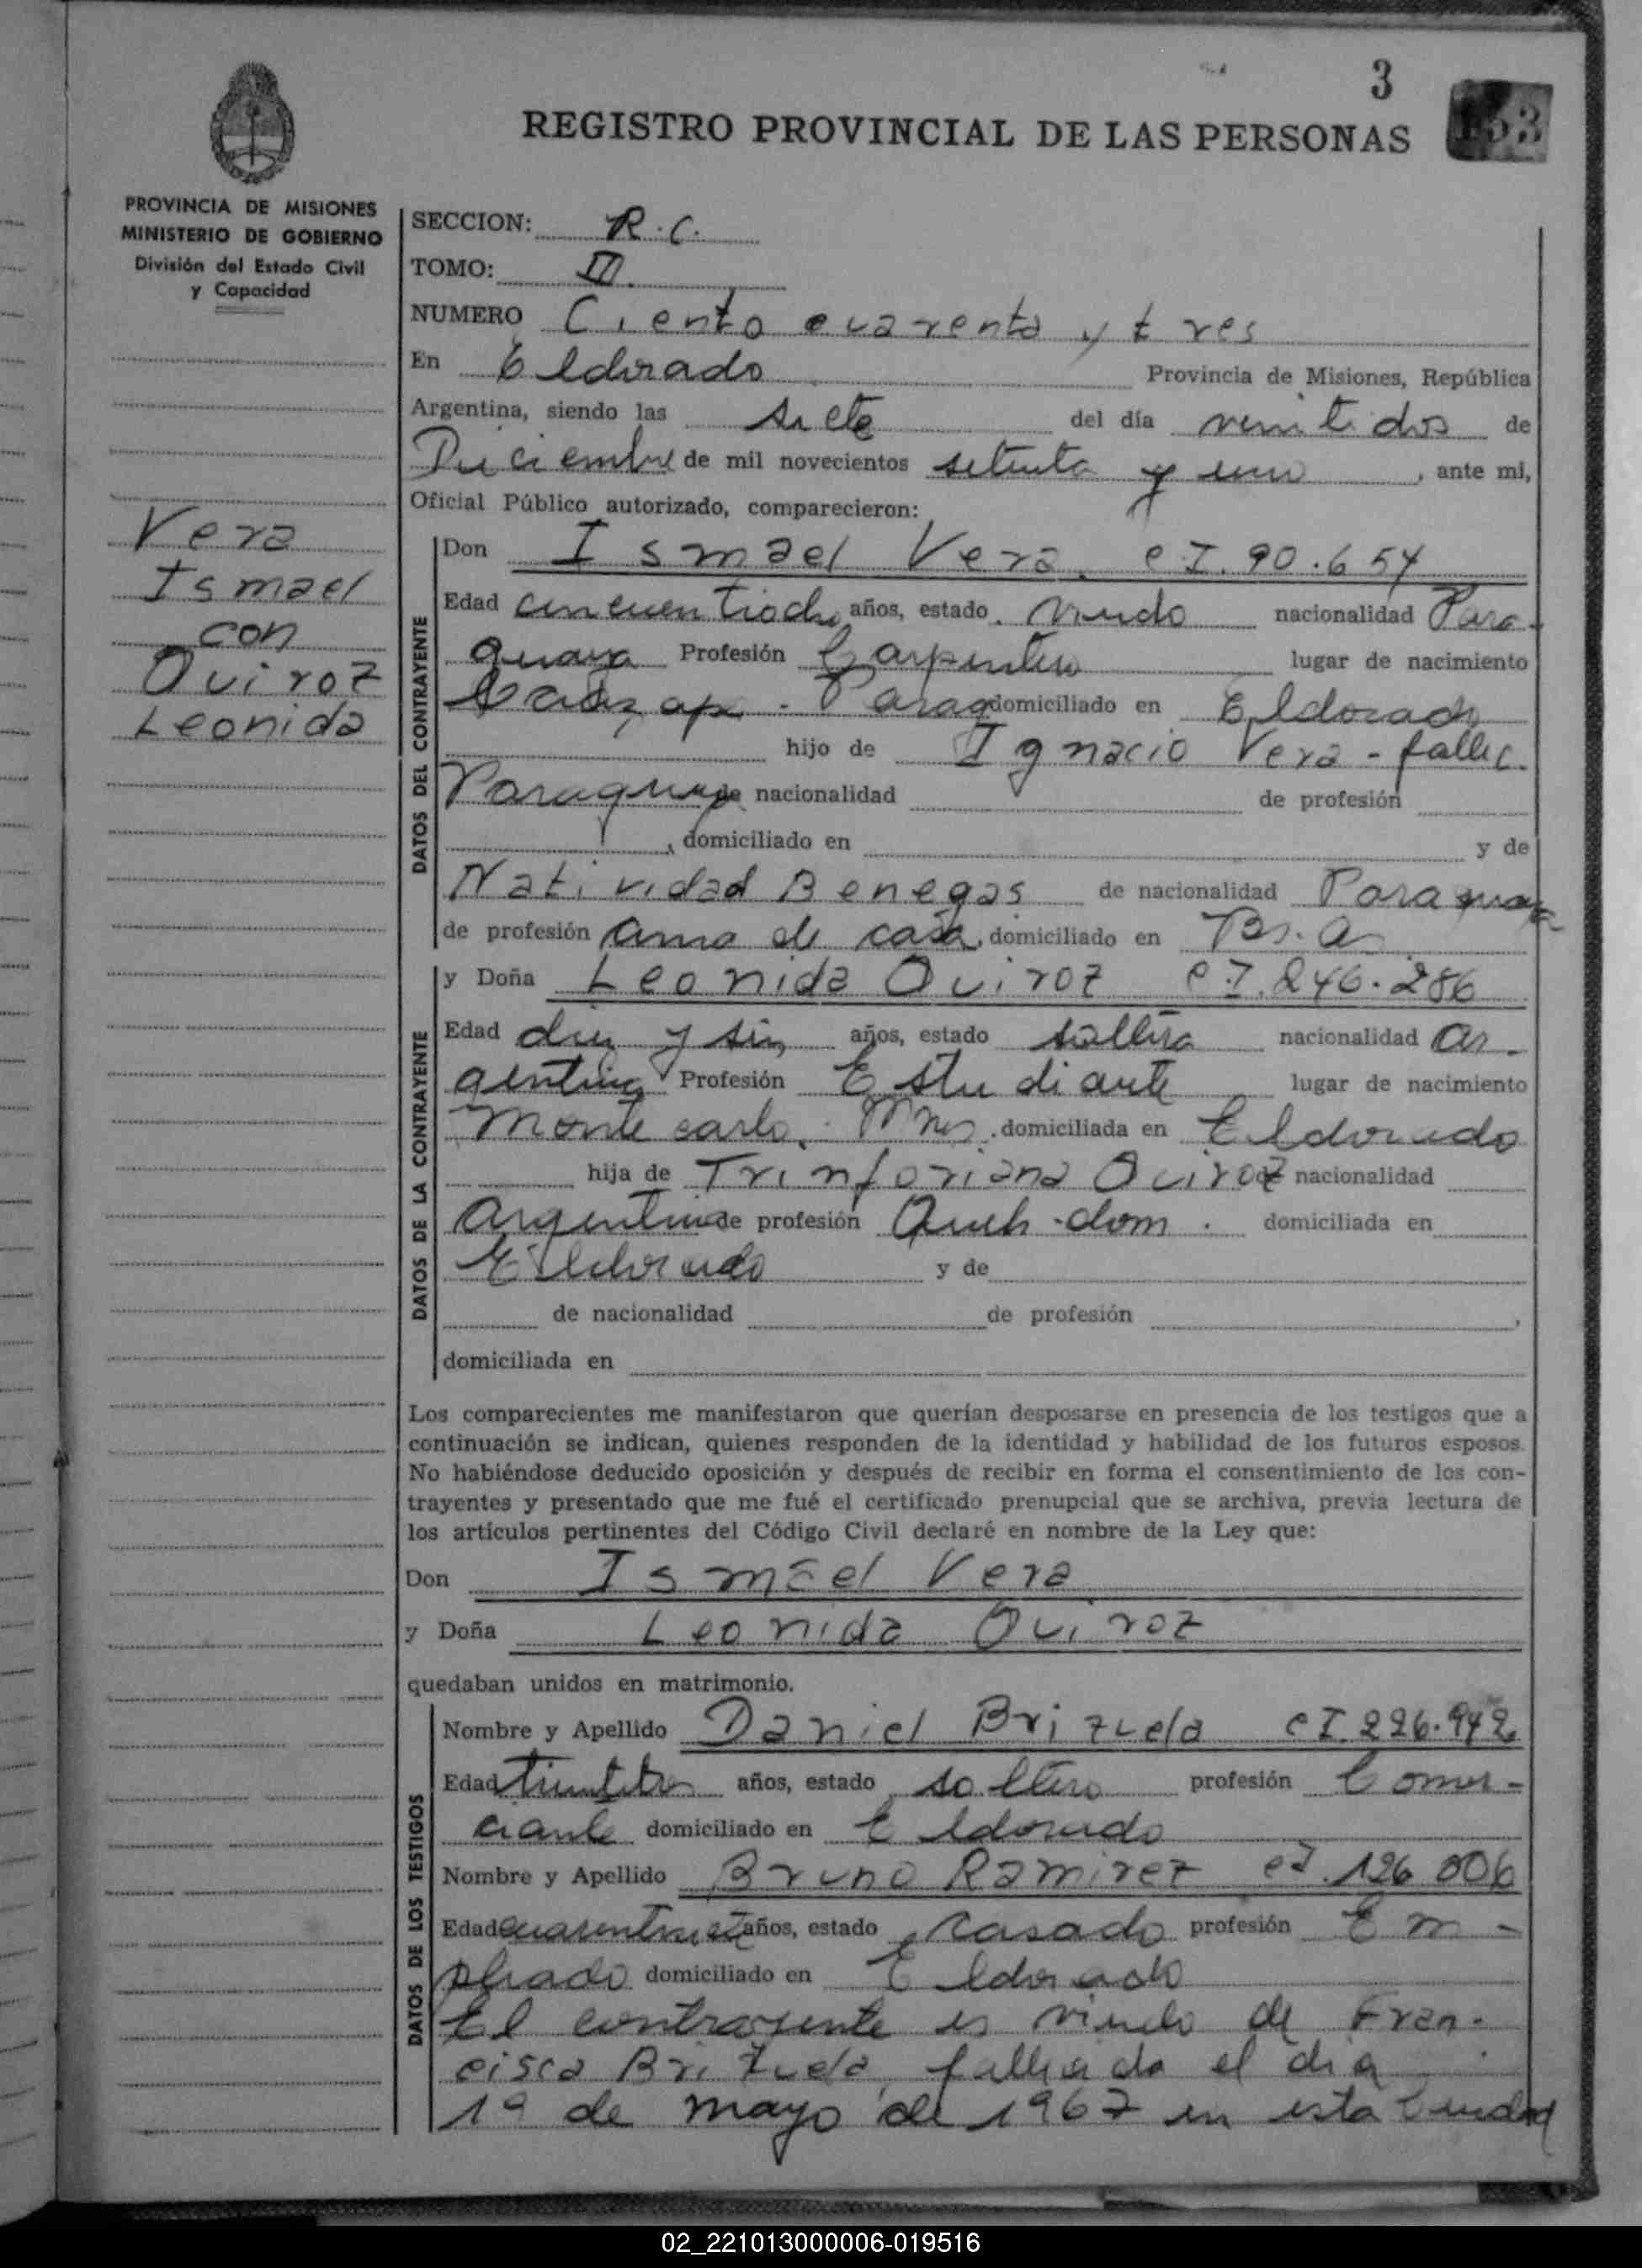 3
REGISTRO PROVINCIAL DE LAS PERSONAS
153
PROVINCIA DE MISIONES
MINISTERIO DE GOBIERNO
División del Estado Civil
y Capacidad
SECCION: R.C.
TOMO: III.
NUMERO Ciento cuarenta y tres
En Eldorado Provincia de Misiones, República
Argentina, siendo las siete del día veintidos de
Diciembre de mil novecientos setenta y uno, ante mi,
Oficial Público autorizado, comparecieron:
Vera
Ismael
con
Quiroz
Leonida
DATOS DEL CONTRAYENTE
Don Ismael Vera. CI. 90.654
Edad cincuentiocho años, estado viudo nacionalidad Para-
guaya Profesión Carpintero lugar de nacimiento
Caazapa - Parag domiciliado en Eldorado
hijo de Ignacio Vera - fallec.
Paraguaya de nacionalidad de profesión
, domiciliado en y de
Natividad Benegas de nacionalidad Paraguaya
de profesión ama de casa, domiciliado en Bs. As
DATOS DE LA CONTRAYENTE
y Doña Leonida Quiroz CI. 246.286
Edad diez y seis años, estado soltera nacionalidad Ar-
gentina Profesión Estudiante lugar de nacimiento
Monte carlo. Mnes. domiciliada en Eldorado
hija de Trinforiana Quiroz de nacionalidad
Argentina de profesión Queh. dom. domiciliada en
Eldorado y de
de nacionalidad de profesión ,
domiciliada en
Los comparecientes me manifestaron que querían desposarse en presencia de los testigos que a
continuación se indican, quienes responden de la identidad y habilidad de los futuros esposos.
No habiéndose deducido oposición y después de recibir en forma el consentimiento de los con-
trayentes y presentado que me fué el certificado prenupcial que se archiva, previa lectura de
los artículos pertinentes del Código Civil declaré en nombre de la Ley que:
Don Ismael Vera
y Doña Leonida Quiroz
quedaban unidos en matrimonio.
DATOS DE LOS TESTIGOS
Nombre y Apellido Daniel Brizuela CI. 226.942
Edad treintitres años, estado soltero profesión Comer-
ciante domiciliado en Eldorado
Nombre y Apellido Bruno Ramirez CI. 126 006
Edad años, estado casado profesión Em-
pleado domiciliado en Eldorado
El contrayente es viudo de Fran-
cisca Brizuela, fallecida el dia
19 de mayo de 1967 en esta Ciudad
02_221013000006-019516